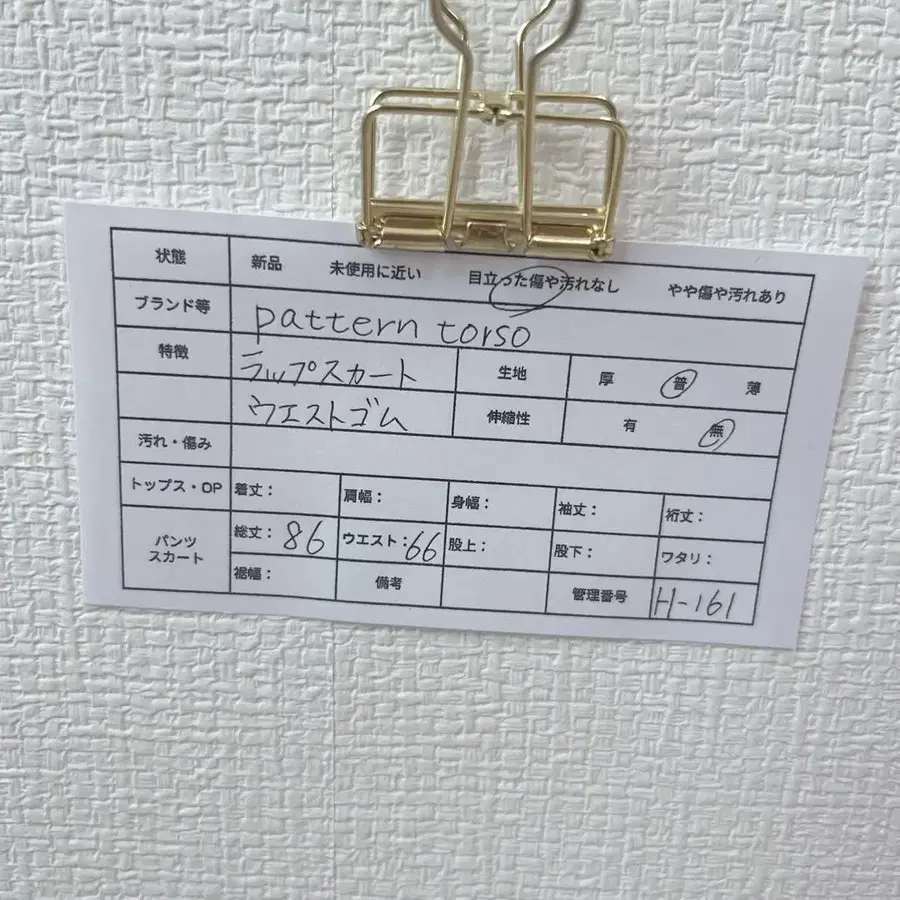 状態 新品 未使用に近い 目立った傷や汚れなし やや傷や汚れあり
ブランド等 pattern torso
特徴 ラップスカート 生地 厚 普 薄
ウエストゴム 伸縮性 有 無
汚れ・傷み
トップス・OP 着丈: 肩幅: 身幅: 袖丈: 裄丈:
パンツ スカート 総丈:86 ウエスト:66 股上: 股下: ワタリ:
裾幅: 備考 管理番号 H-161